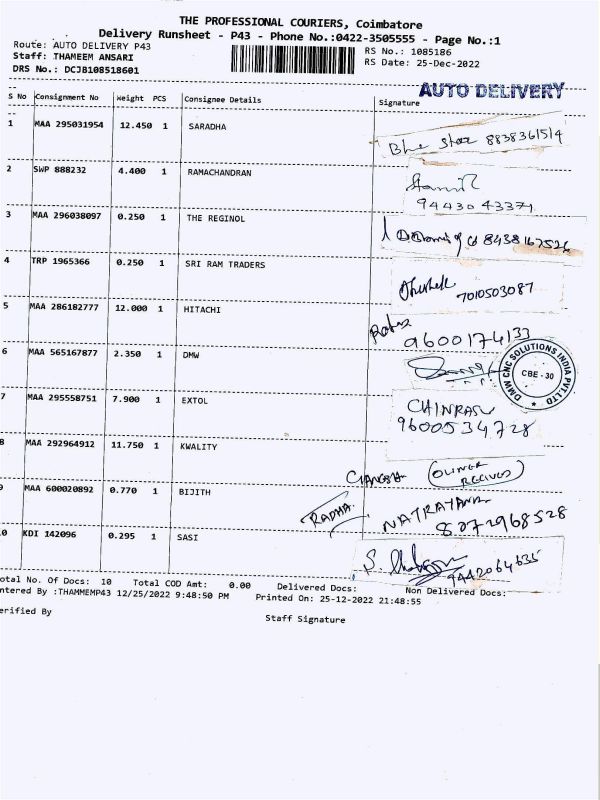 THE PROFESSIONAL COURIERS, Coimbatore
Delivery Runsheet - P43 - Phone No.:0422-3505555 - Page No.:1
Route: AUTO DELIVERY P43
RS No.: 1085186
Staff: THAMEEM ANSARI
RS Date: 25-Dec-2022
DRS No.: DCJB108518601
AUTO DELIVERY
S No Consignment No Weight PCS Consignee Details Signature
1 MAA 295031954 12.450 1 SARADHA Blue Star 8838361514
2 SWP 888232 4.400 1 RAMACHANDRAN
94430 43371
3 MAA 296038097 0.250 1 THE REGINOL 8438167526
4 TRP 1965366 0.250 1 SRI RAM TRADERS
7010503087
5 MAA 286182777 12.000 1 HITACHI
9600174133
6 MAA 565167877 2.350 1 DMW
DMW CNC SOLUTIONS INDIA PVT LTD
CBE - 30
7 MAA 295558751 7.900 1 EXTOL CHINRASU
9600534728
8 MAA 292964912 11.750 1 KWALITY
9 MAA 600020892 0.770 1 BIJITH
RADHA NATRAYANA
8072968528
0 KDI 142096 0.295 1 SASI
9442064635
otal No. Of Docs: 10 Total COD Amt: 0.00 Delivered Docs: Non Delivered Docs:
ntered By :THAMMEMP43 12/25/2022 9:48:50 PM Printed On: 25-12-2022 21:48:55
erified By
Staff Signature